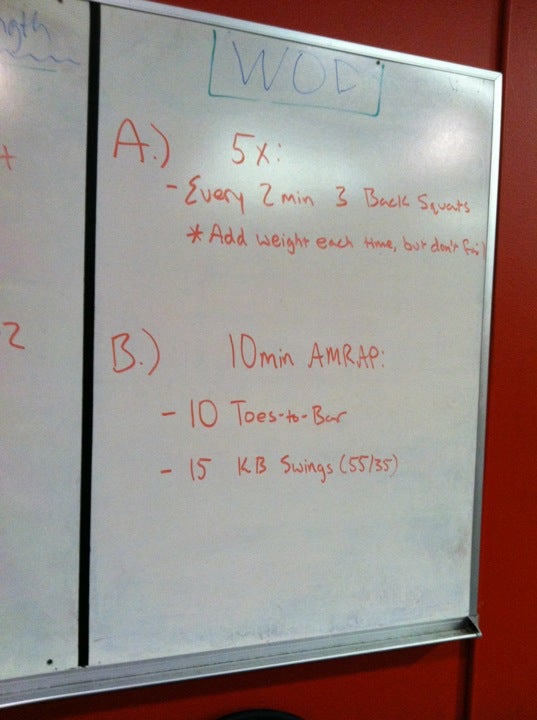 ngth
WOD
A.) 5x:
- Every 2 min 3 Back Squats
* Add weight each time, but don't fail
2
B.) 10min AMRAP:
- 10 Toes-to-Bar
- 15 KB Swings (55/35)